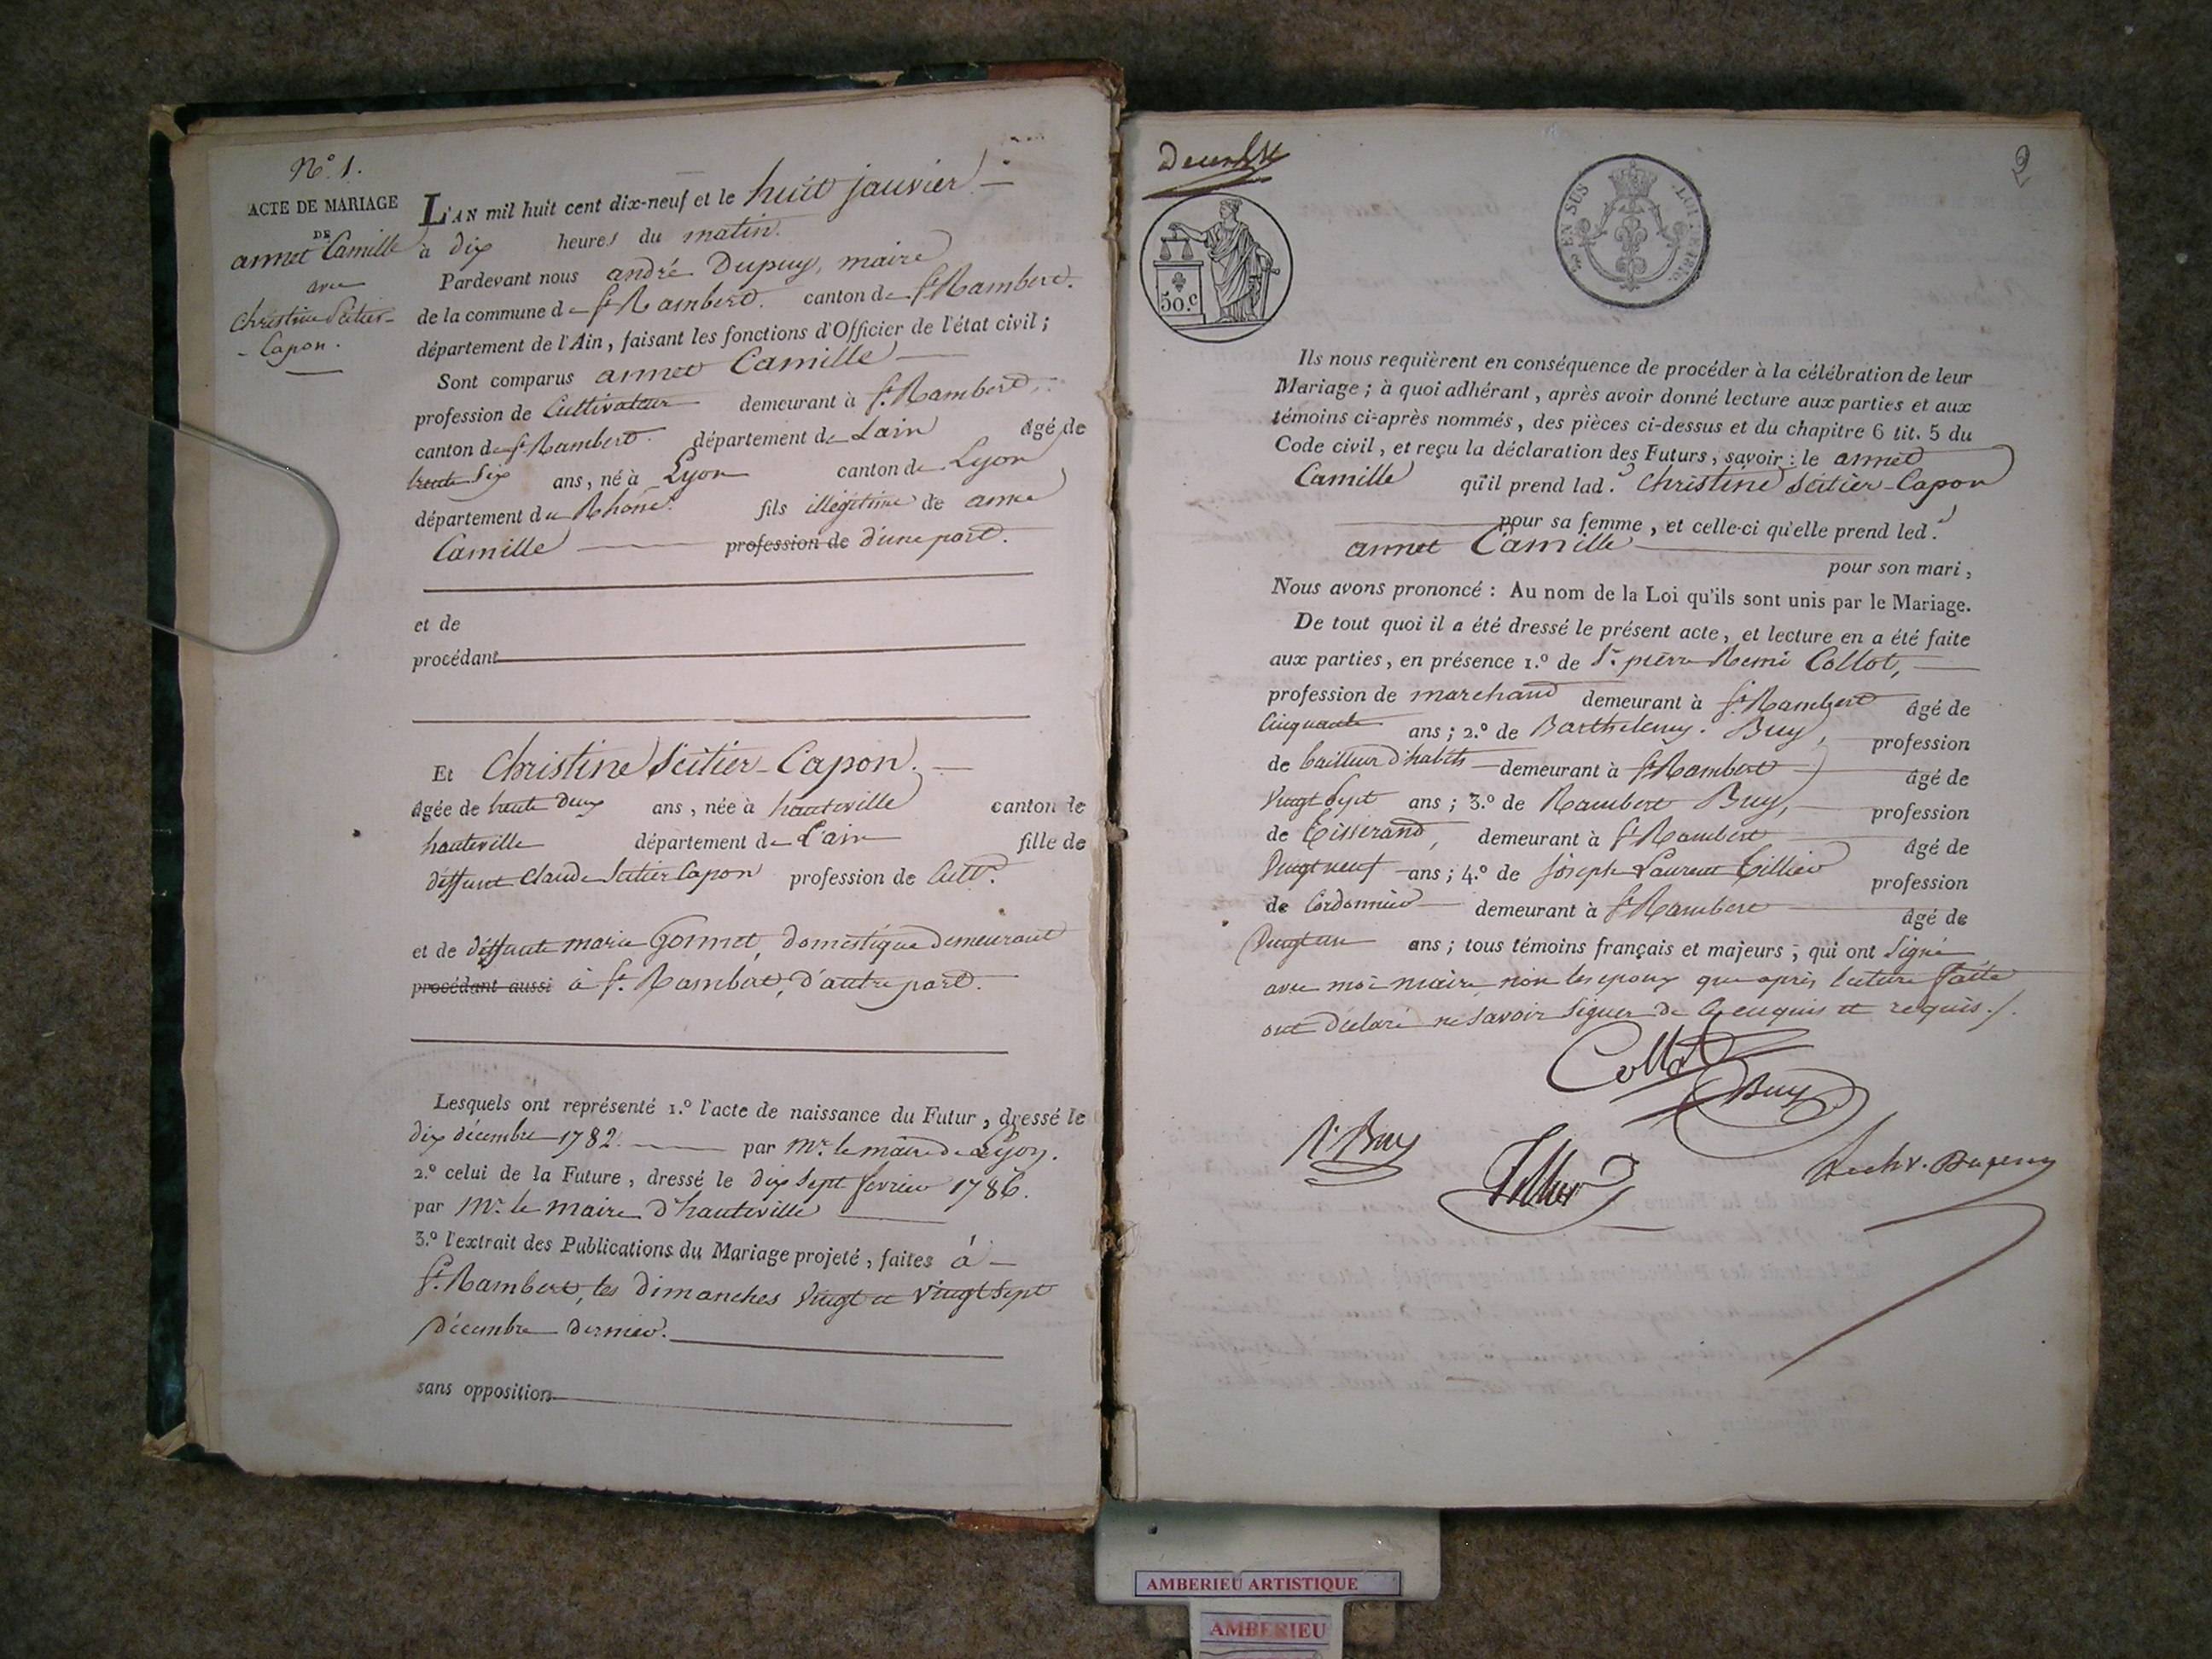 N.° 1.
ACTE DE MARIAGE
DE
annet Camille
avec
Christine Seitier-
-Capon.
L'AN mil huit cent dix-neuf et le huit janvier
à dix heures du matin.
Pardevant nous andré Dupuy, maire
de la commune de St Rambert. canton de St Rambert.
département de l'Ain, faisant les fonctions d'Officier de l'état civil;
Sont comparus annet Camille
profession de Cultivateur demeurant à St. Rambert,
canton de St Rambert. département de Lain âgé de
trente six ans, né à Lyon canton de Lyon
département du Rhône. fils illégitime de anne
Camille profession de d'une part.
et de
procédant
Et Christine Seitier-Capon.
âgée de trente deux ans, née à hauteville canton de
hauteville département de L'ain fille de
deffunt Claude Seitier Capon profession de Cultr.
et de deffunte marie Gonnet, domestique demeurant
procédant aussi à St. Rambert, d'autre part.
Lesquels ont représenté 1.° l'acte de naissance du Futur, dressé le
dix décembre 1782. par Mr. le maire de Lyon.
2.° celui de la Future, dressé le dix sept fevrier 1786.
par Mr. le maire d'hauteville
3.° l'extrait des Publications du Mariage projeté, faites à
St. Rambert, les dimanches vingt et vingt sept
décembre dernier.
sans opposition
2
50.c
EN SUS
LOI DE 1816.
Ils nous requièrent en conséquence de procéder à la célébration de leur
Mariage; à quoi adhérant, après avoir donné lecture aux parties et aux
témoins ci-après nommés, des pièces ci-dessus et du chapitre 6 tit. 5 du
Code civil, et reçu la déclaration des Futurs, savoir: le annet
Camille qu'il prend lad. Christine Seitier-Capon
pour sa femme, et celle-ci qu'elle prend led.
annet Camille
pour son mari,
Nous avons prononcé: Au nom de la Loi qu'ils sont unis par le Mariage.
De tout quoi il a été dressé le présent acte, et lecture en a été faite
aux parties, en présence 1.° de Sr. pierre Remi Collot,
profession de marchand demeurant à St. Rambert âgé de
Cinquante ans; 2.° de Barthelemy Buy, profession
de tailleur d'habits demeurant à St Rambert âgé de
vingt Sept ans; 3.° de Rambert Buy, profession
de tisserand, demeurant à St Rambert âgé de
vingt neuf ans; 4.° de joseph Laurent Tillier profession
de Cordonnier demeurant à St Rambert âgé de
vingt un ans; tous témoins français et majeurs, qui ont Signé
avec moi maire, non les epoux que après lecture faite
ont déclaré ne savoir signer de ce enquis et requis./.
Collot
Buy
R. Buy
Tillier
Dupuy
AMBERIEU ARTISTIQUE
AMBERIEU